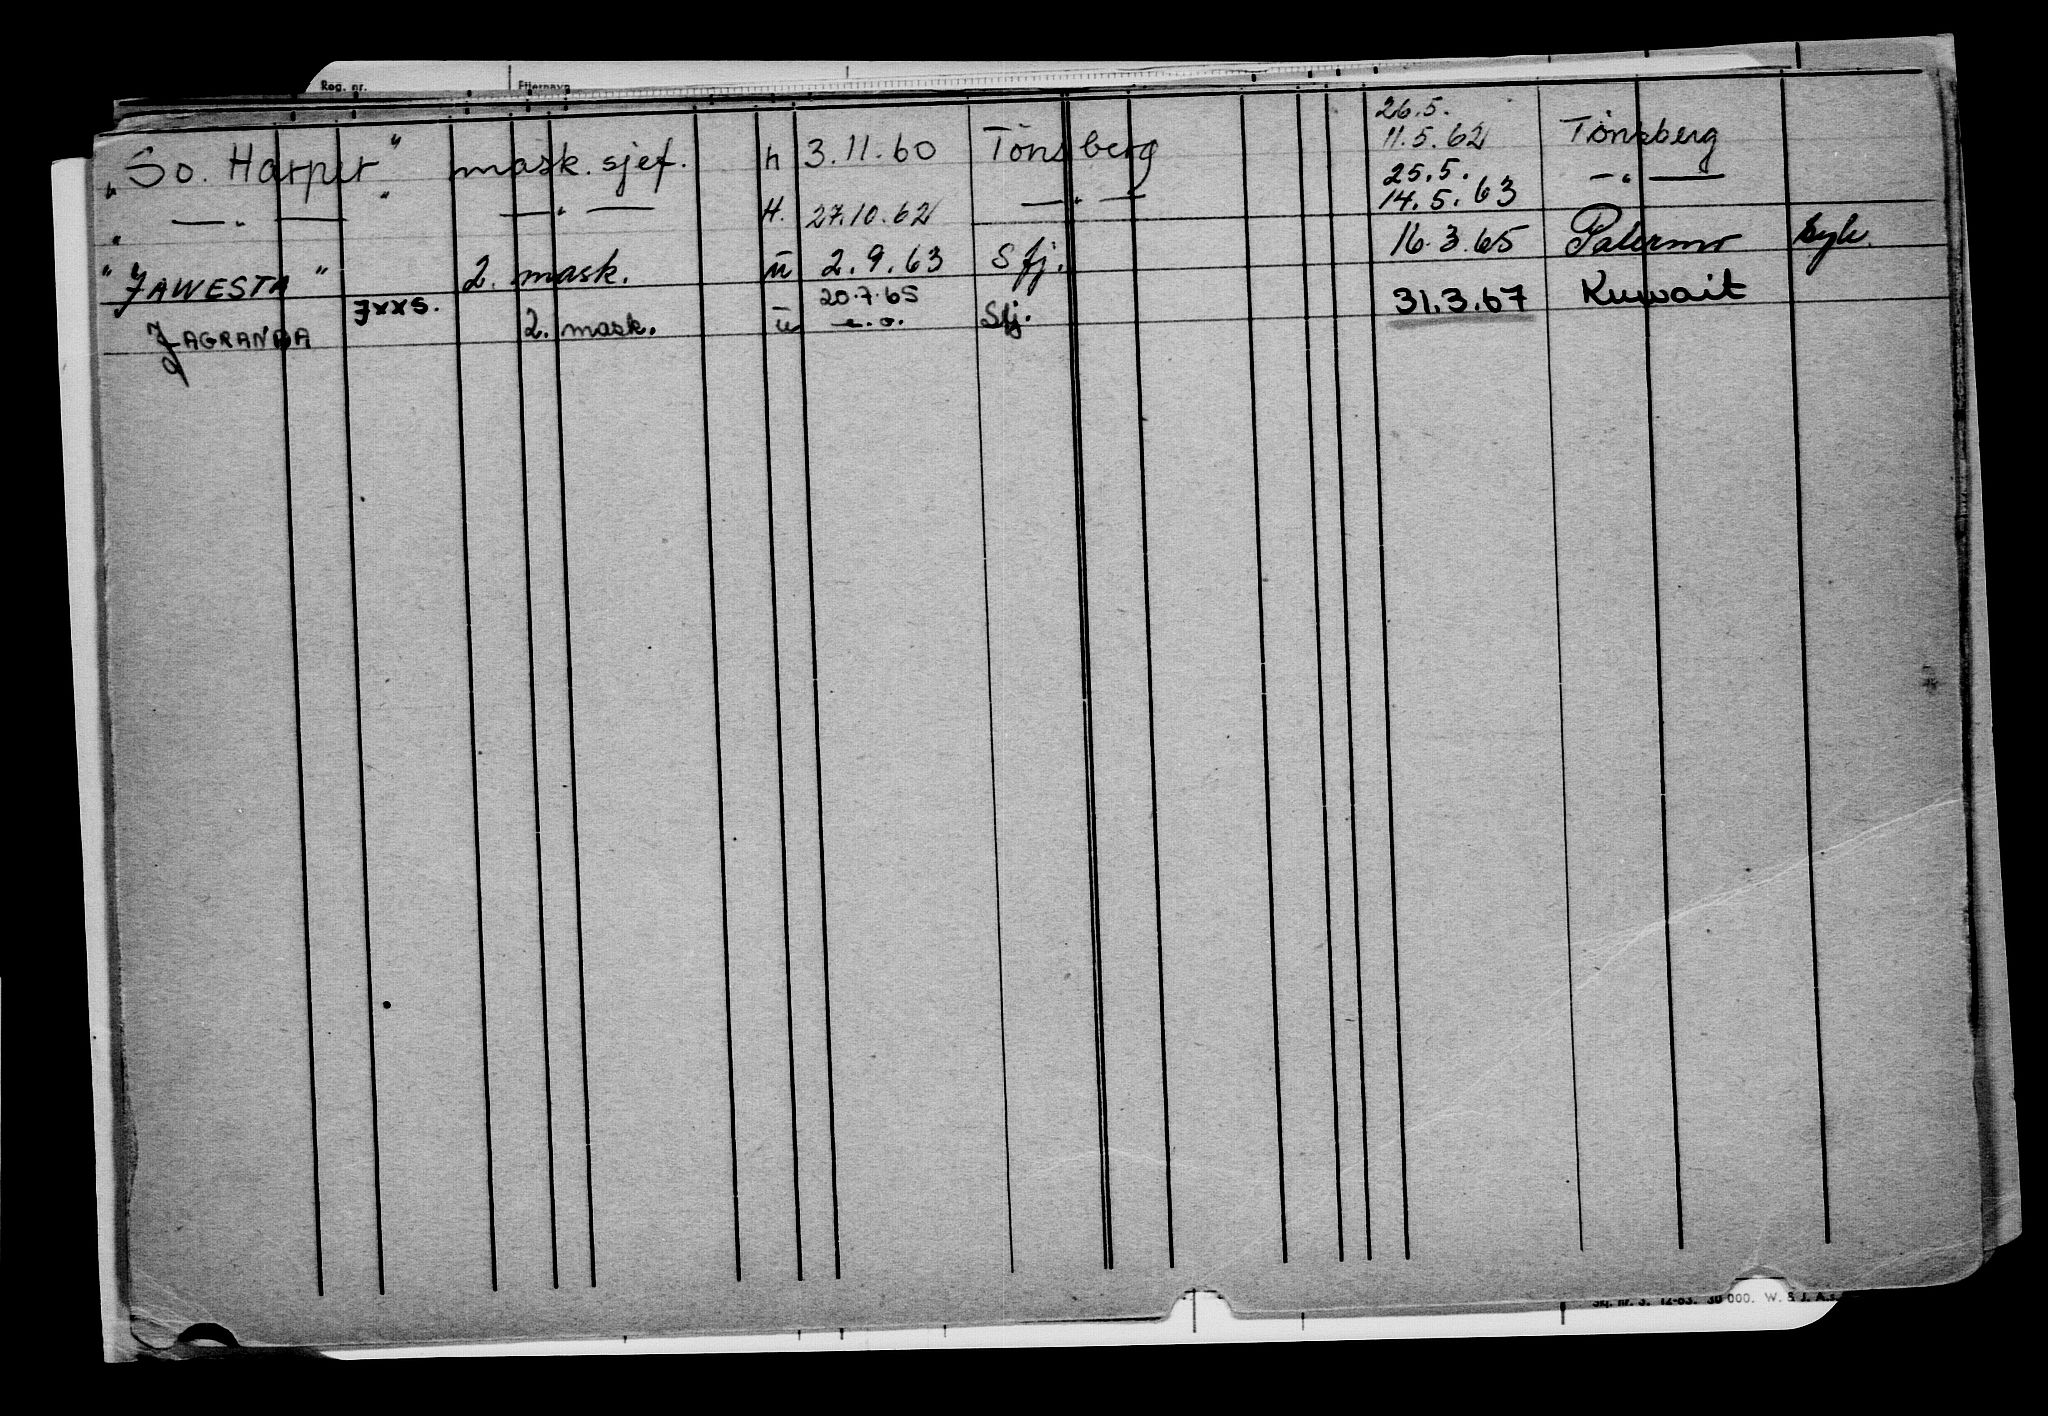 Reg. nr. Etternavn
26.5.
"So. Harper" mask. sjef. h 3.11.60 Tönsberg 11.5.62 Tönsberg
25.5.
" — " — " — " — H. 27.10.62 — " — 14.5.63 — " —
"JAWESTA" 2. mask. ū 2.9.63 Sfj. 16.3.65 Palermo syk.
20.7.65
JAGRANDA JXXS. 2. mask. ū e.o. Sfj. 31.3.67 Kuwait
nr. 3. 12-63. 30 000. W. & J. A.s.